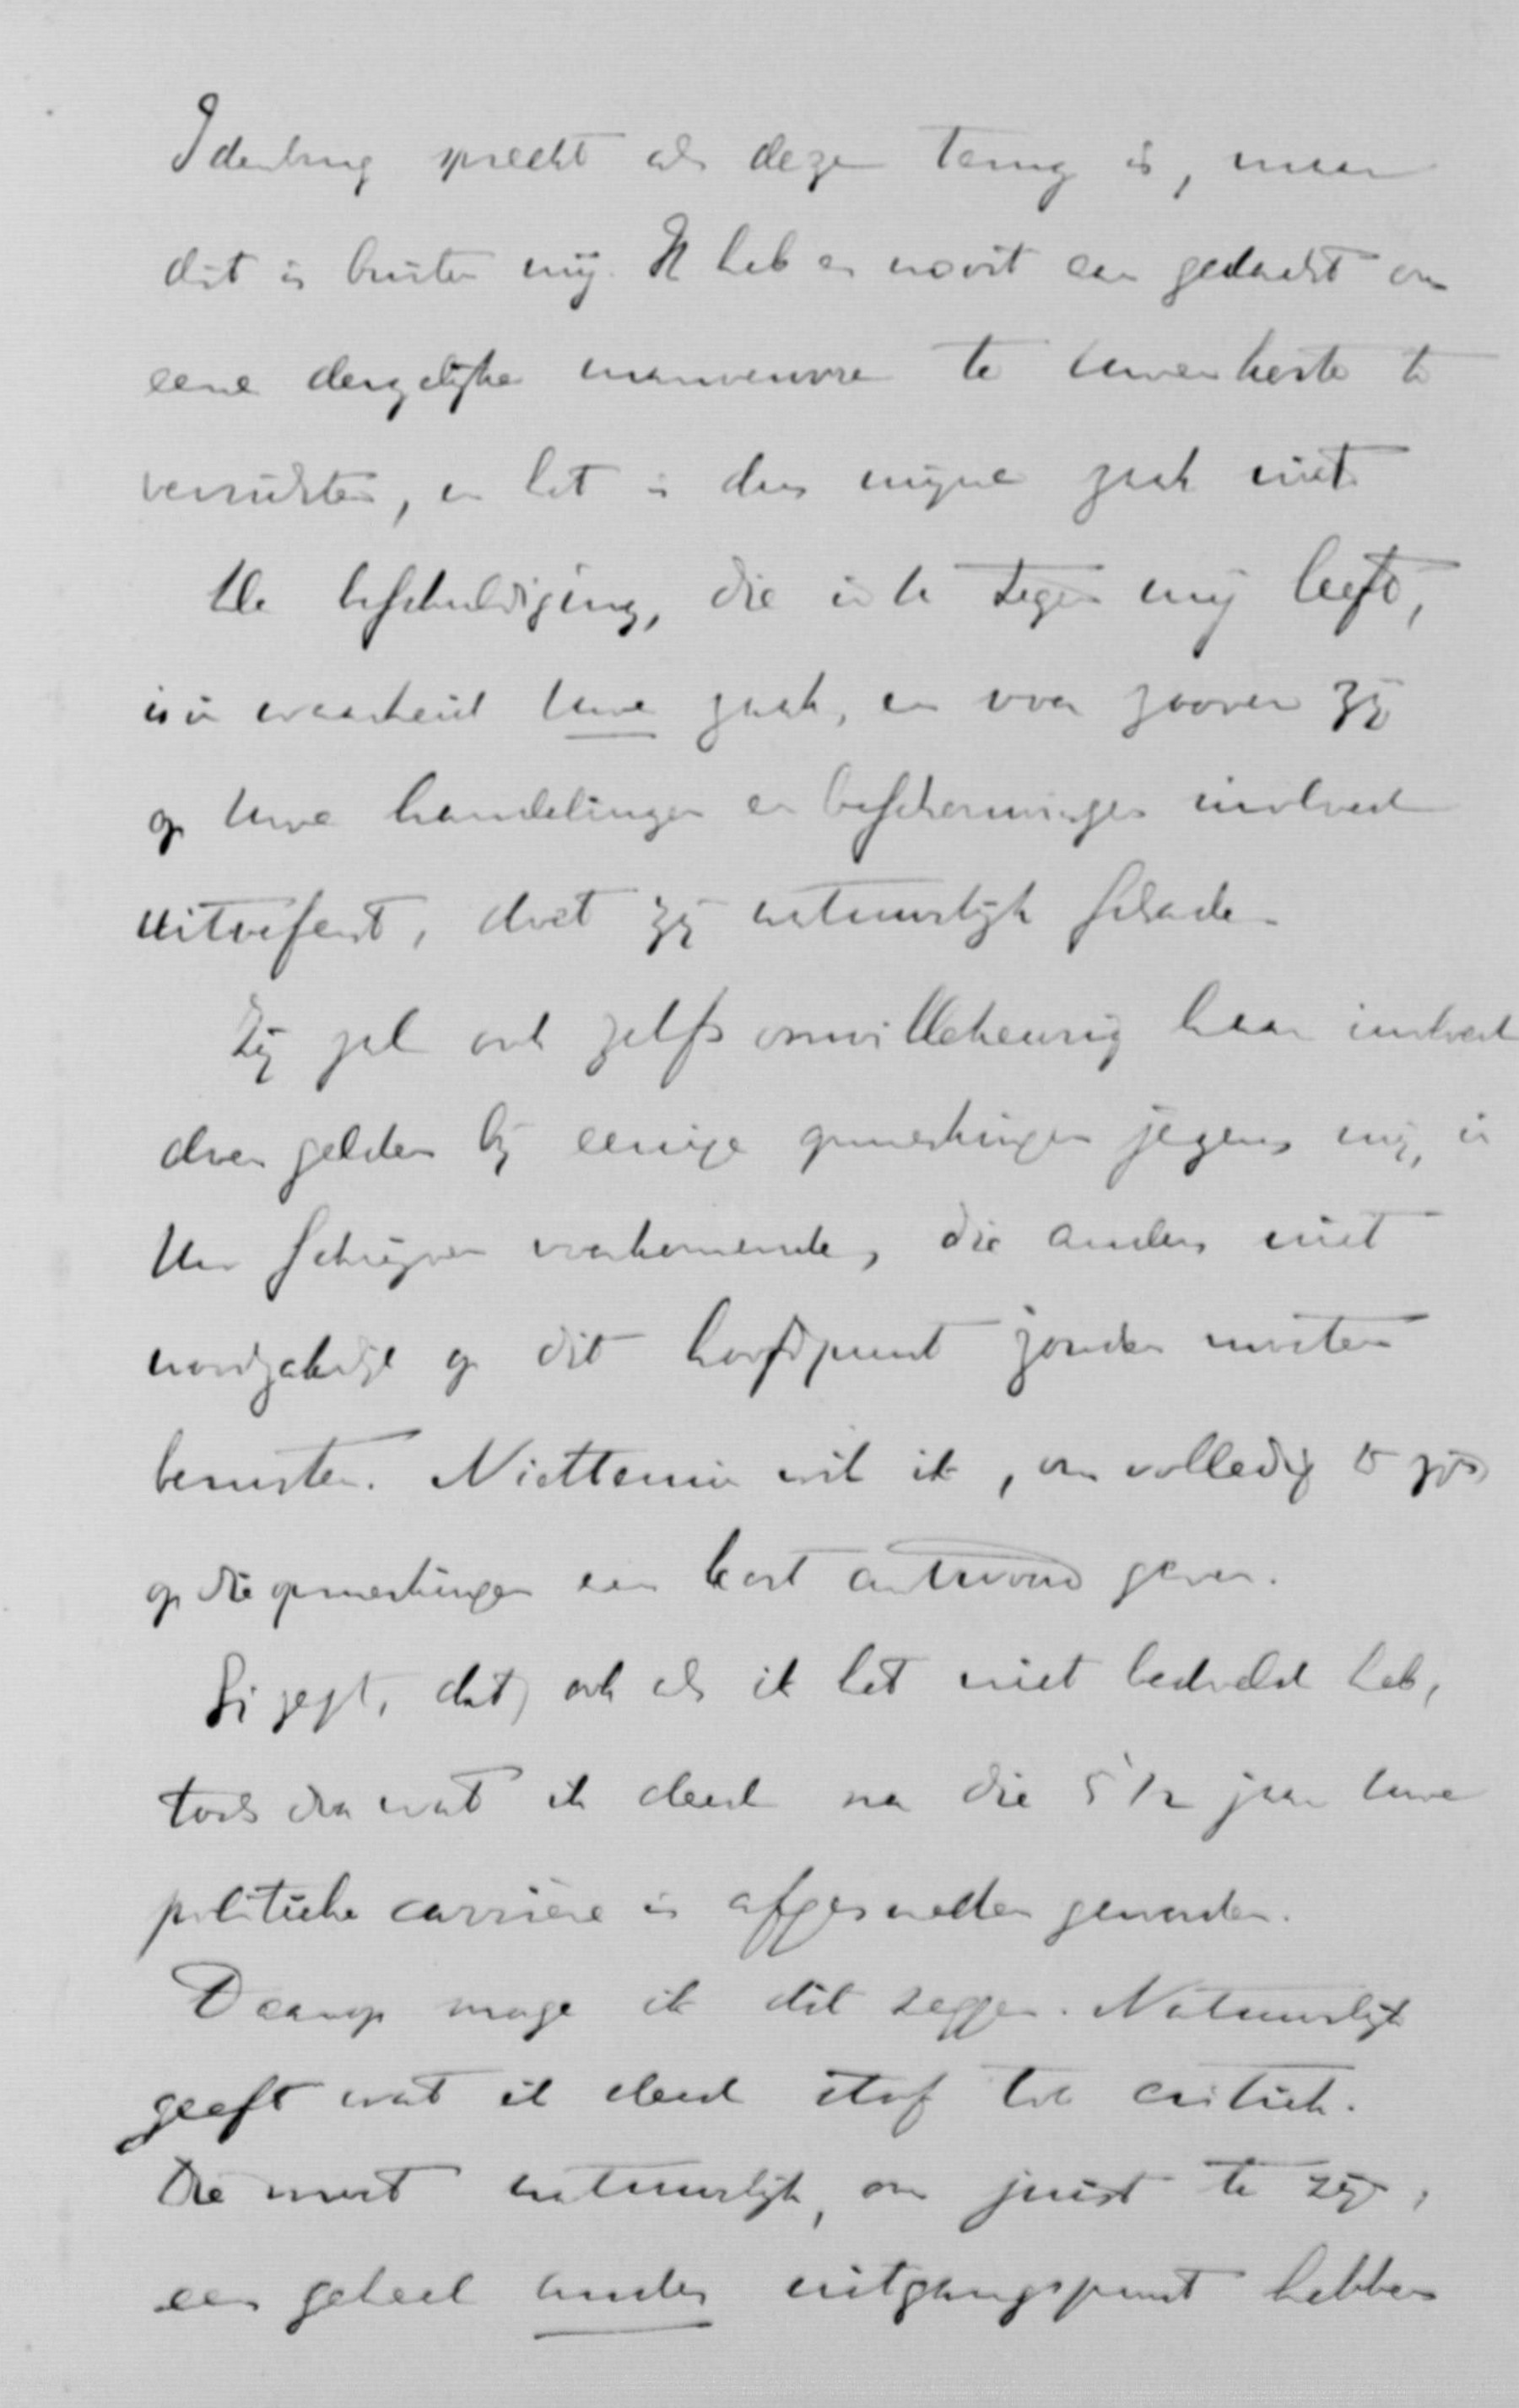 Idenburg spreekt als deze terug is, maar
dit is buiten mij. Ik heb er nooit aan gedacht om
eene dergelijke manoeuvre te Uwen koste te
verrichten, en het is dus mijne zaak niet.
Uw beschuldiging, die in U tegen mij leeft,
is in waarheid Uwe zaak, en voor zoover zij
op Uwe handelingen en beschouwingen invloed
uitoefent, doet zij natuurlijk schade.
Zij zal ook zelfs onwillekeurig haar invloed
doen gelden bij eenige opmerkingen jegens mij, in
Uw schrijven voorkomende, die anders niet
noodzakelijk op dit hoofdpunt zouden moeten
berusten. Niettemin wil ik, om volledig te zijn
op die opmerkingen een kort antwoord geven.
Gij zegt, dat, ook als ik het niet bedoeld heb,
toch door wat ik deed na die 5 1/2 jaar Uwe
politieke carrière is afgesneden geworden.
Daarop moge ik dit zeggen. Natuurlijk
geeft wat ik deed stof tot critiek.
Die moet natuurlijk, om juist te zijn,
een geheel ander uitgangspunt hebben